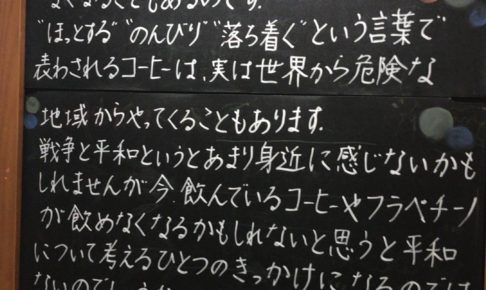 なくなることもあるのです.
"ほっとする" "のんびり" "落ち着く"という言葉で
表わされるコーヒーは,実は世界から危険な
地域からやってくることもあります.
戦争と平和というとあまり身近に感じないかも
しれませんが今,飲んでいるコーヒーやフラペチーノ
が飲めなくなるかもしれないと思うと平和
について考えるひとつのきっかけになるのでは
ないのでしょうか